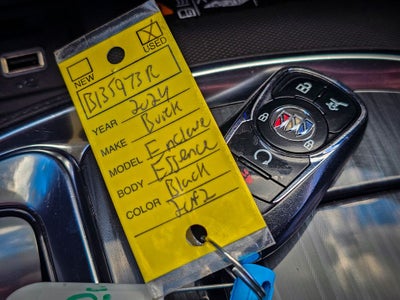 NEW
USED
B135973R
YEAR 2024
MAKE Buick
MODEL Enclave
BODY Essence
COLOR Black